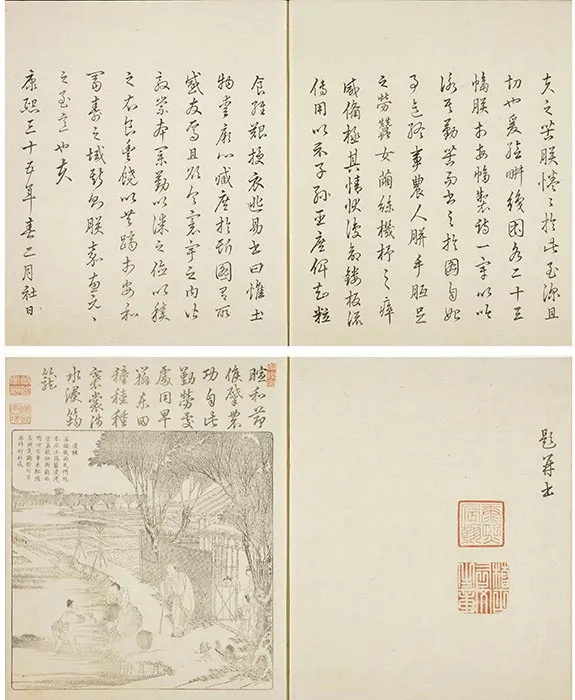 夫之苦朕惓惓於此至深且
切也爰繪畊織圖各二十三
幅朕於每幅製詩一章以吟
詠其勤苦而書之於圖自始
事迄終事農人胼手胝足
之勞蠶女繭絲機杼之瘁
咸備極其情狀復命鏤板流
傳用以示子孫臣庶俾知粒
食維艱授衣匪易書曰惟土
物愛厥心臧庶於斯圖有所
感發焉且欲令寰宇之內皆
敦崇本業勤以謀之儉以積
之衣食豐饒以共躋於安和
富壽之域斯則朕嘉惠元々
之至意也夫
康熙三十五年春二月社日
題并書
康熙宸翰
稽古右文之章
暄和節
候肇農
功自此
勤勞處
處同早
辦東田
穜稑種
褰裳涉
水浸筠
籠
浸種